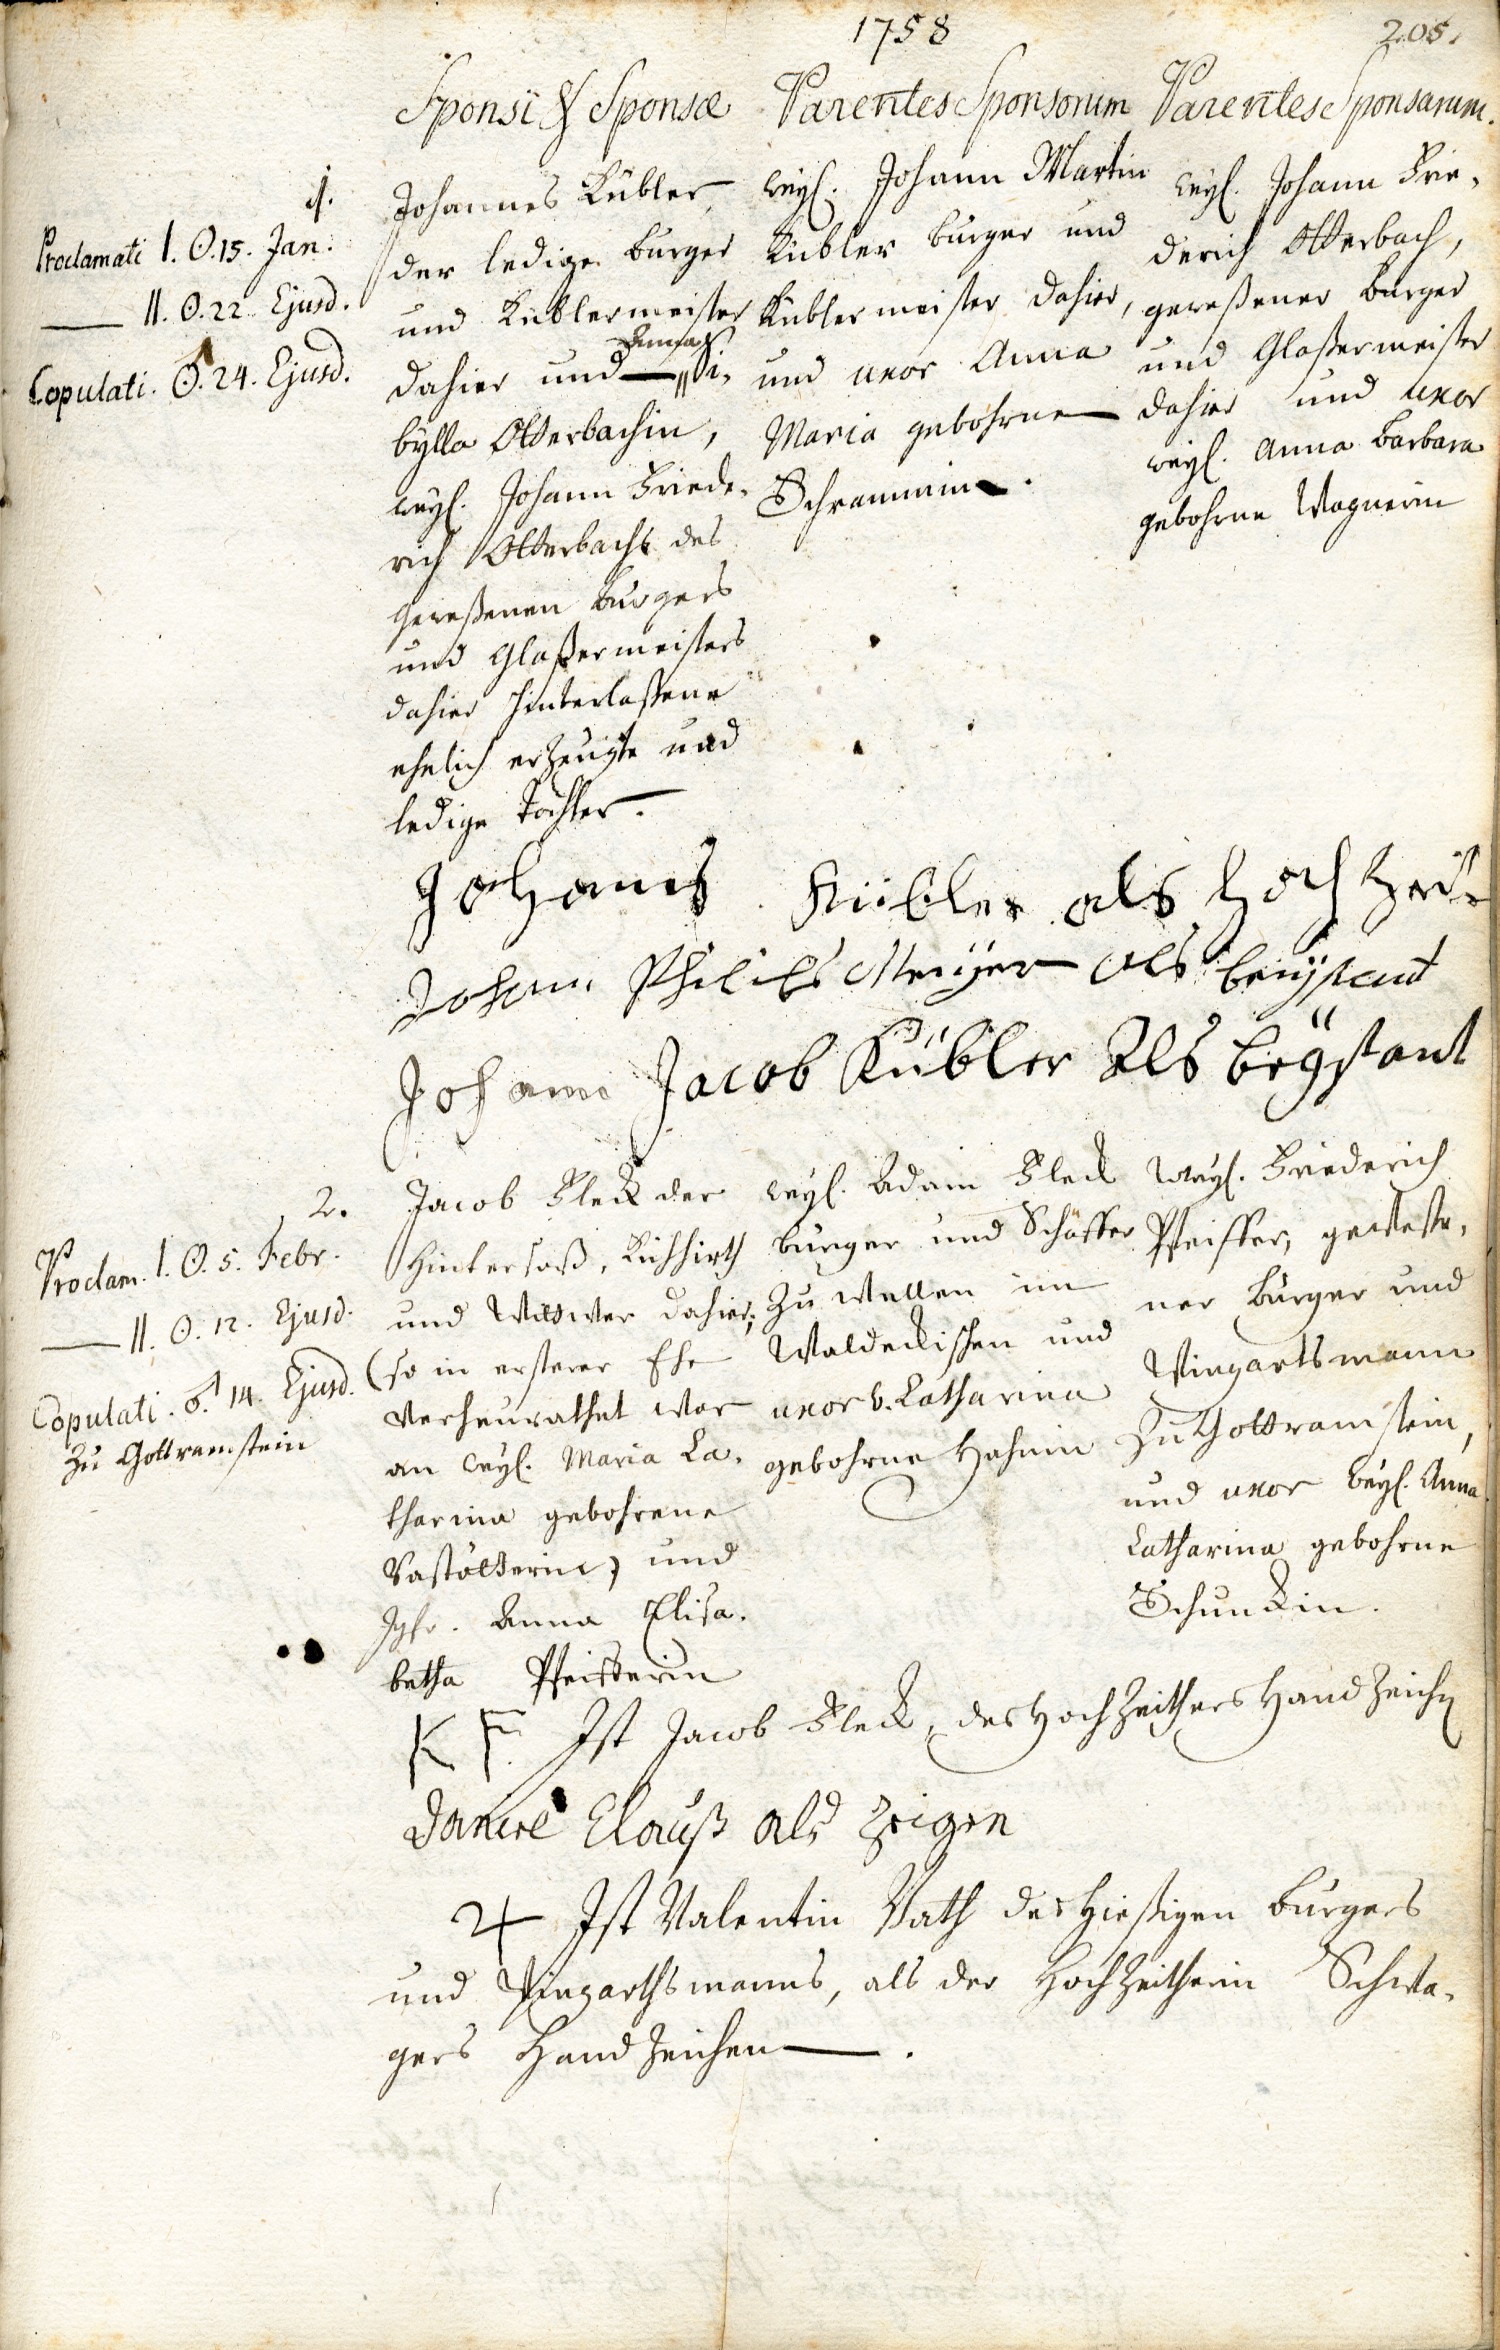 1758
205.
Sponsi & Sponsæ
Parentes Sponsorum
Parentes Sponsarum.
1.
Proclamati I. ☉. 15. Jan.
—— II. ☉. 22. Ejusd.
Copulati. ♂. 24. Ejusd.
Johannes Kübler,
der ledige burger
und Küblermeister
Anna
dahier und — Si-
bylla Otterbachin,
weyl. Johann Friede-
rich Otterbachs des
geweßenen burgers
und Glaßermeisters
dahier hinterlaßene
ehelich erzeugte und
ledige Tochter.
weyl. Johann Martin
Kübler burger und
Küblermeister dahier,
und uxor Anna
Maria gebohrne
Schrammin.
weyl. Johann Frie-
derich Otterbach,
geweßener burger
und Glaßermeister
dahier und uxor
weyl. Anna Barbara
gebohrne Wagnerin
Johanes Kübler als hoch Zeiter
Johann Philips Meÿer als beÿstant
Johann Jacob Kübler Als beÿstant
2.
Proclam. I. ☉. 5. Febr.
—— II. ☉. 12. Ejusd.
Copulati. ♂. 14. Ejusd.
zu Gottramstein
Jacob Fleck der
Hintersaß, Kühhirth
und Wittwer dahier,
(so in ersterer Ehe
verheurathet war
an weyl. Maria Ca-
tharina gebohrene
und
Jgfr. Anna Elisa-
betha Pfeifferin
weyl. Adam Fleck
burger und Schäffer
zu Wellen im
Waldeckischen und
uxor v. Catharina
gebohrne Hahnin
Weyl. Friederich
Pfeiffer, geweße-
ner burger und
Wingartsmann
zu Gottramstein,
und uxor weyl. Anna
Catharina gebohrne
Schunckin.
K F. Ist Jacob Fleck, des Hochzeithers Handzeichen
Daniel Clauß als Zeigen
Ist Valentin Vath des hießigen burgers
und Wingarthsmanns, als der Hochzeitherin Schwa-
gers Handzeichen —.